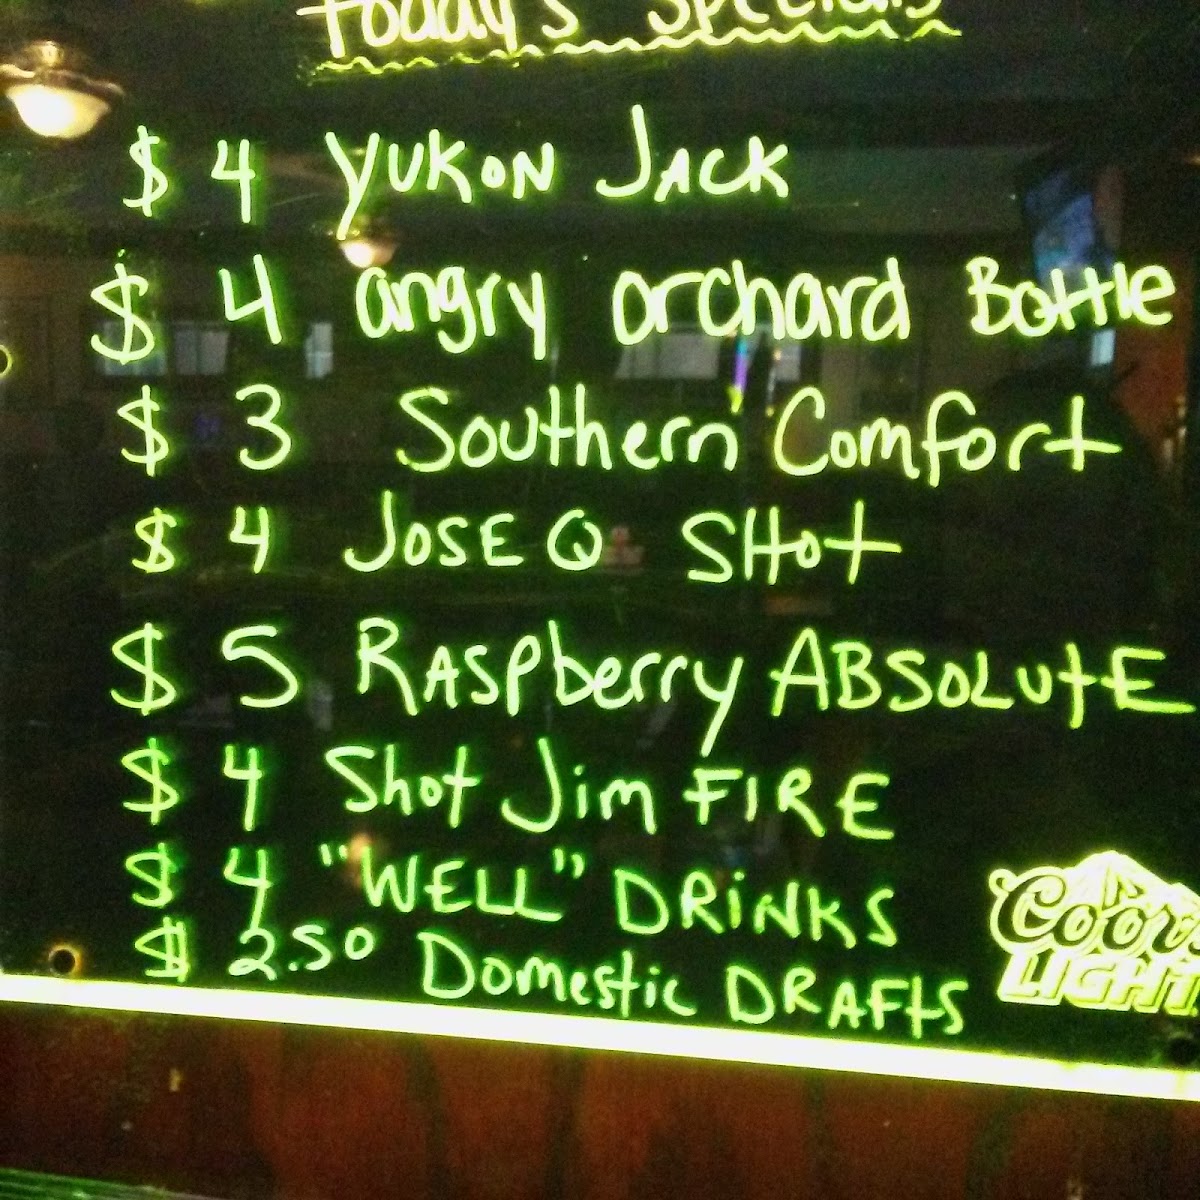 today's specials
$ 4 YUKON JACK
$ 4 angry orchard Bottle
$ 3 Southern Comfort
$ 4 JOSE Q SHOt
$ 5 RASPberry ABSOLUtE
$ 4 Shot Jim FIRE
$ 4 "WELL" DRiNKS
$ 2.50 Domestic DRAFtS
Coors
LIGHT